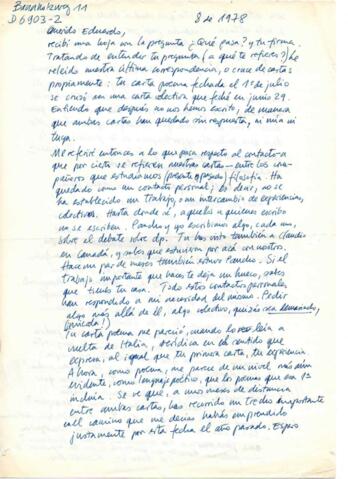 Brunnholzweg 11
D 6903-2
8 de 1978
Querido Eduardo,
recibí una hoja con la pregunta ¿Qué pasa? y tu firma.
Tratando de entender tu pregunta (a qué te refieres?) he
releído nuestra última correspondencia, o cruce de cartas
propiamente: tu carta poema fechada el 1º de julio
se cruzó con una carta colectiva que feché en junio 29.
Entiendo que después no nos hemos escrito, de manera
que ambas cartas han quedado sin respuesta, ni mía ni
tuya.
Me referiré entonces a lo que pasa respecto al contacto-a
que por cierto se refieren nuestras cartas- entre los com-
pañeros que estudiamos (presente y pasado) filosofía. Ha
quedado como un contacto personal; es decir, no se
ha establecido un trabajo, o un intercambio de experiencias,
colectivos. Hasta donde sé, aquellos a quienes escribo
no se escriben. Pancho y yo escribimos algo, cada uno,
sobre el debate sobre dp. Tú has visto también a Claudio
en Canadá, y sabes que estuvieron por acá con nosotros.
Hace un par de meses también estuvo Pancho. Si el
trabajo importante que haces te deja un hueco, sabes
que tienes tu casa. Todos estos contactos personales
han respondido a mi necesidad del mismo. Pedir
algo más allá de él, algo colectivo, quizás sea demasiado,
Tu carta poema me pareció, cuando la leía a
vuelta de Italia, verídica en el sentido que
expresa, al igual que tu primera carta, tu experiencia.
Ahora, como poema, me parece de un nivel más aún
evidente, como lenguaje poético, que los poemas que esa 1ª
incluía. Se ve que, a unos meses de distancia
entre ambas cartas, has recorrido un trecho importante
en el camino que me decías habías emprendido
justamente por esta fecha el año pasado. Espero